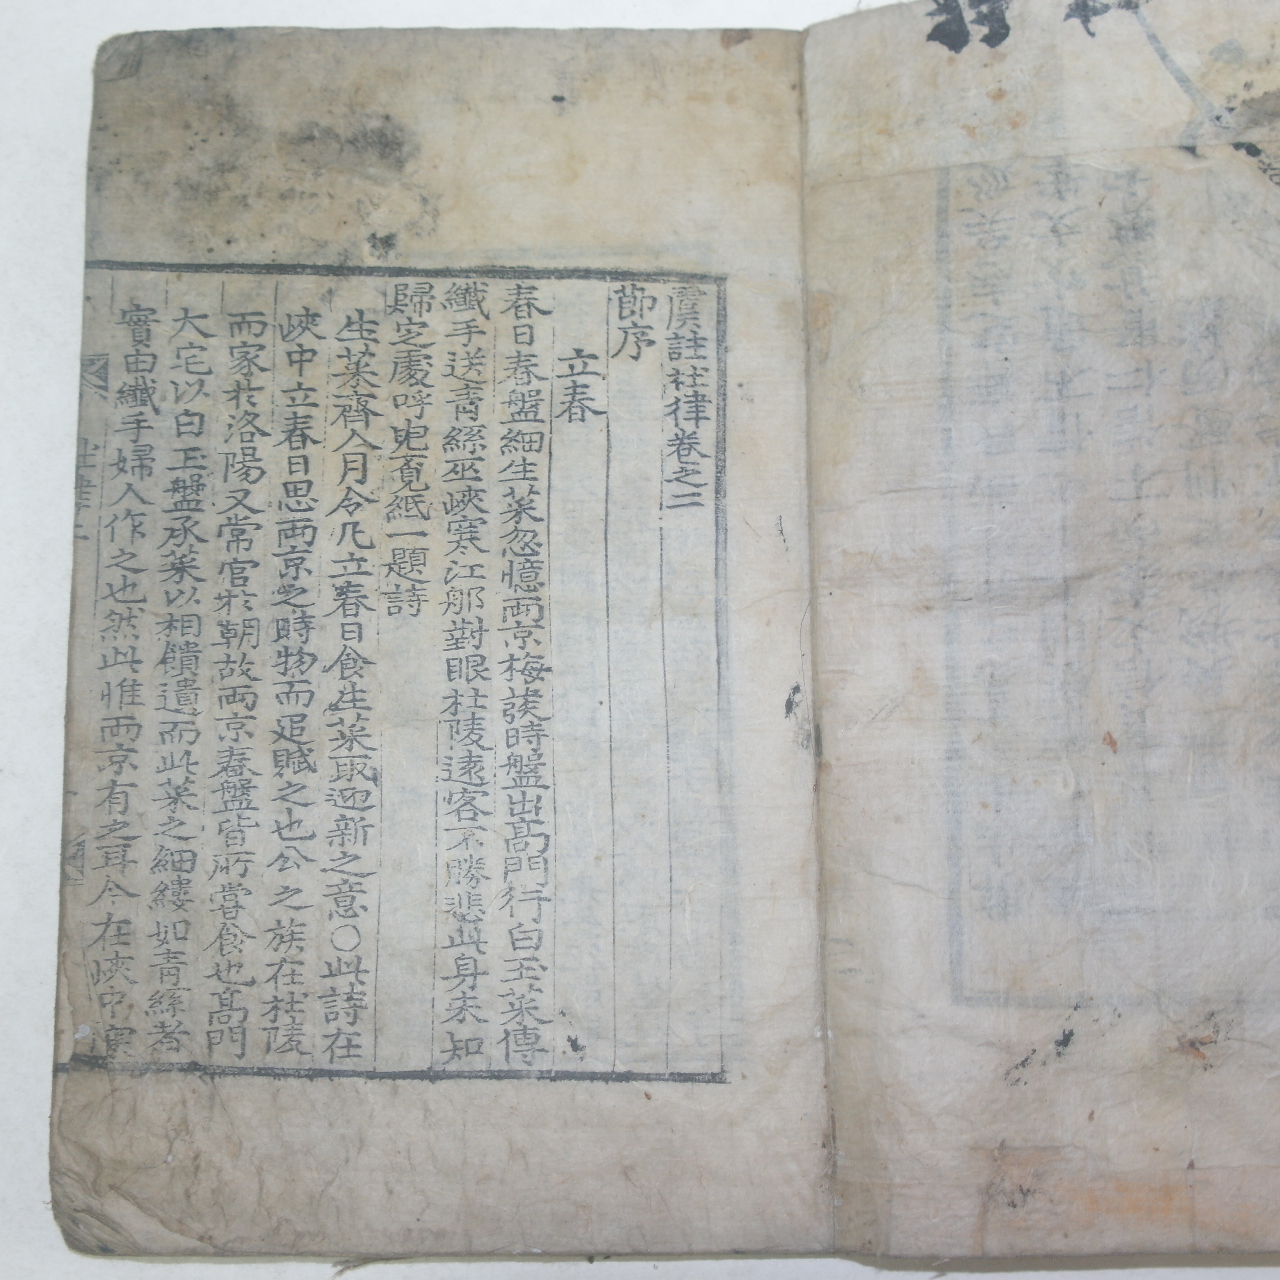 虞註杜律卷之二
節序
立春
春日春盤細生菜忽憶兩京梅發時盤出高門行白玉菜傳
纖手送青絲巫峽寒江那對眼杜陵遠客不勝悲此身未知
歸定處呼兒覓紙一題詩
生菜齊人月令凡立春日食生菜取迎新之意○此詩在
峽中立春日思兩京之時物而追賦之也公之族在杜陵
而家於洛陽又常官於朝故兩京春盤皆所嘗食也高門
大宅以白玉盤承菜以相饋遺而此菜之細縷如青絲者
實由纖手婦人作之也然此惟兩京有之耳今在峽中
杜律二